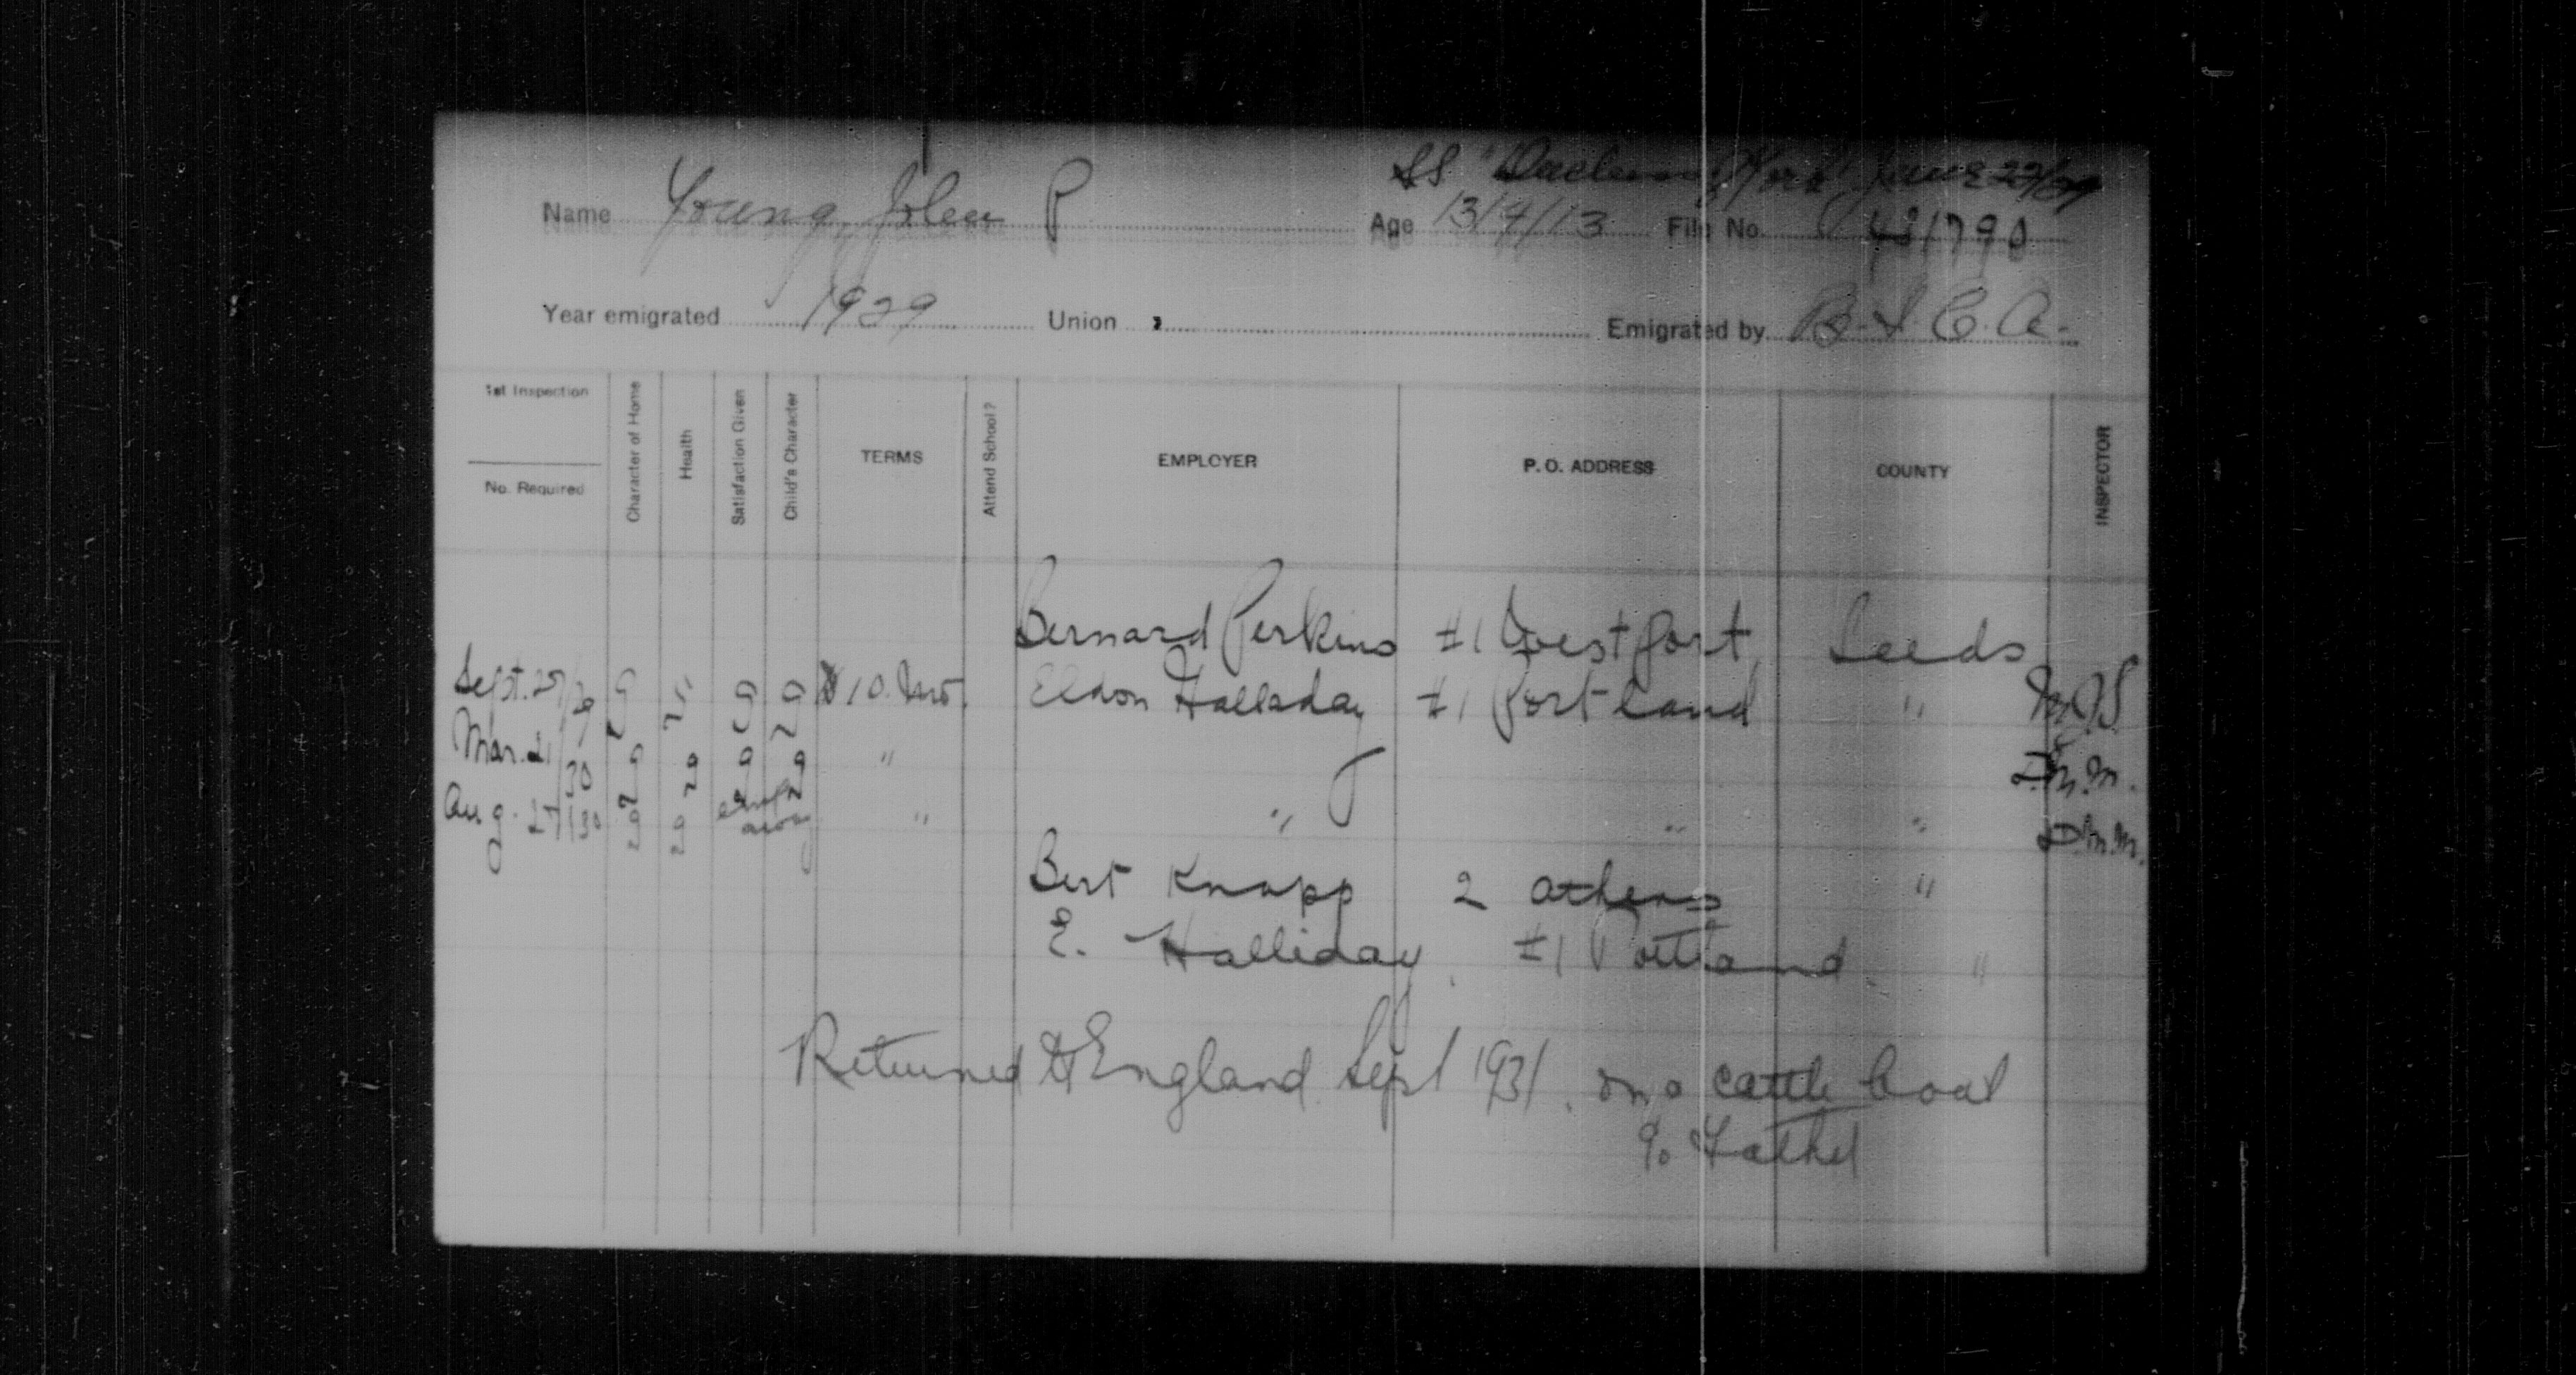 SS "Duchess of York" June 22/29
Name Young, John P Age 13/4/13 File No. 481790
Year emigrated 1929 Union Emigrated by B.I.C.A.
1st Inspection No. Required Character of Home Health Satisfaction Given Child's Character TERMS Attend School? EMPLOYER P.O. ADDRESS COUNTY INSPECTOR
Bernard Perkins #1 Westport Leeds
Sept. 27/29 g " g g $10. mo. Eldon Halladay #1 Portland "
Mar. 21/30 g g g g " D.M.M.
Aug. 27/30 g g away " " " " D.M.M.
Bert Knapp 2 Athens "
E. Halliday #1 Portland "
Returned to England Sept 1931. on a cattle boat
% Father